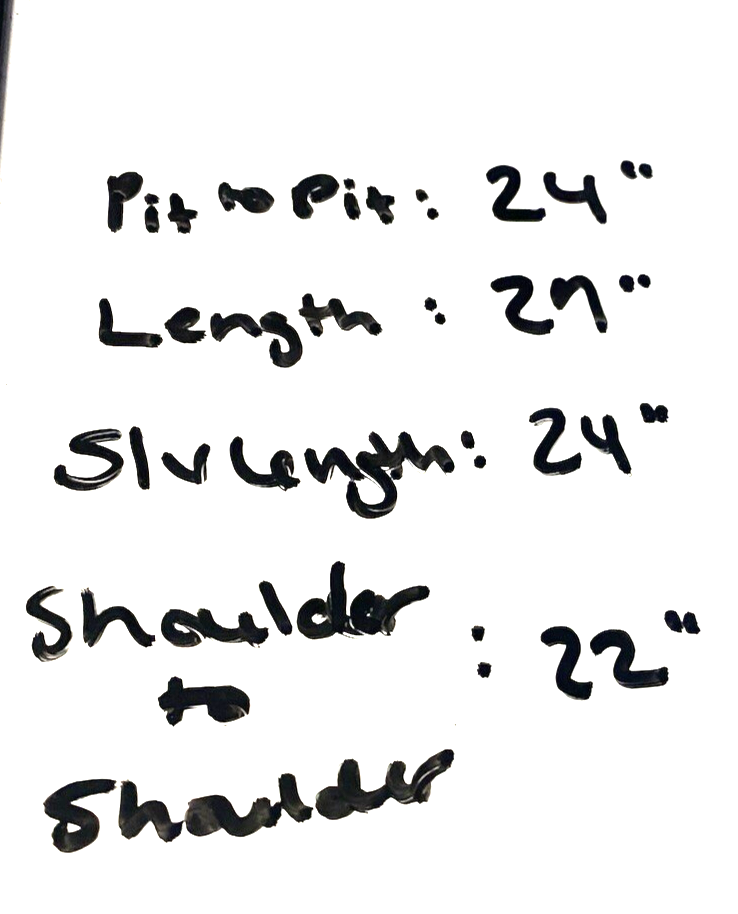 Pit to Pit: 24"
Length: 27"
Slv Length: 24"
Shoulder
to : 22"
Shoulder